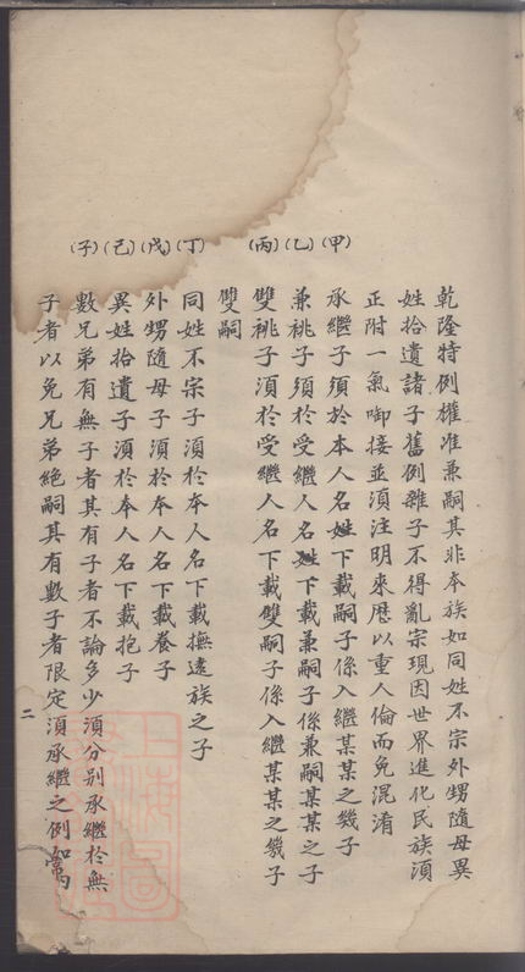 乾隆特例權准兼嗣其非本族如同姓不宗外甥隨母異
姓拾遺諸子舊例雜子不得亂宗現因世界進化民族須
正附一氣啣接並須注明來歷以重人倫而免混淆
(甲)承繼子須於本人名姓下載嗣子係入繼某某之幾子
(乙)兼祧子須於受繼人名姓下載兼嗣子係兼嗣某某之子
(丙)雙祧子須於受繼人名下載雙嗣子係入繼某某之幾子
雙嗣
(丁)同姓不宗子須於本人名下載撫遠族之子
(戊)外甥隨母子須於本人名下載養子
(己)異姓拾遺子須於本人名下載抱子
(子)數兄弟有無子者其有子者不論多少須分別承繼於無
子者以免兄弟絕嗣其有數子者限定須承繼之例如
二
上海圖